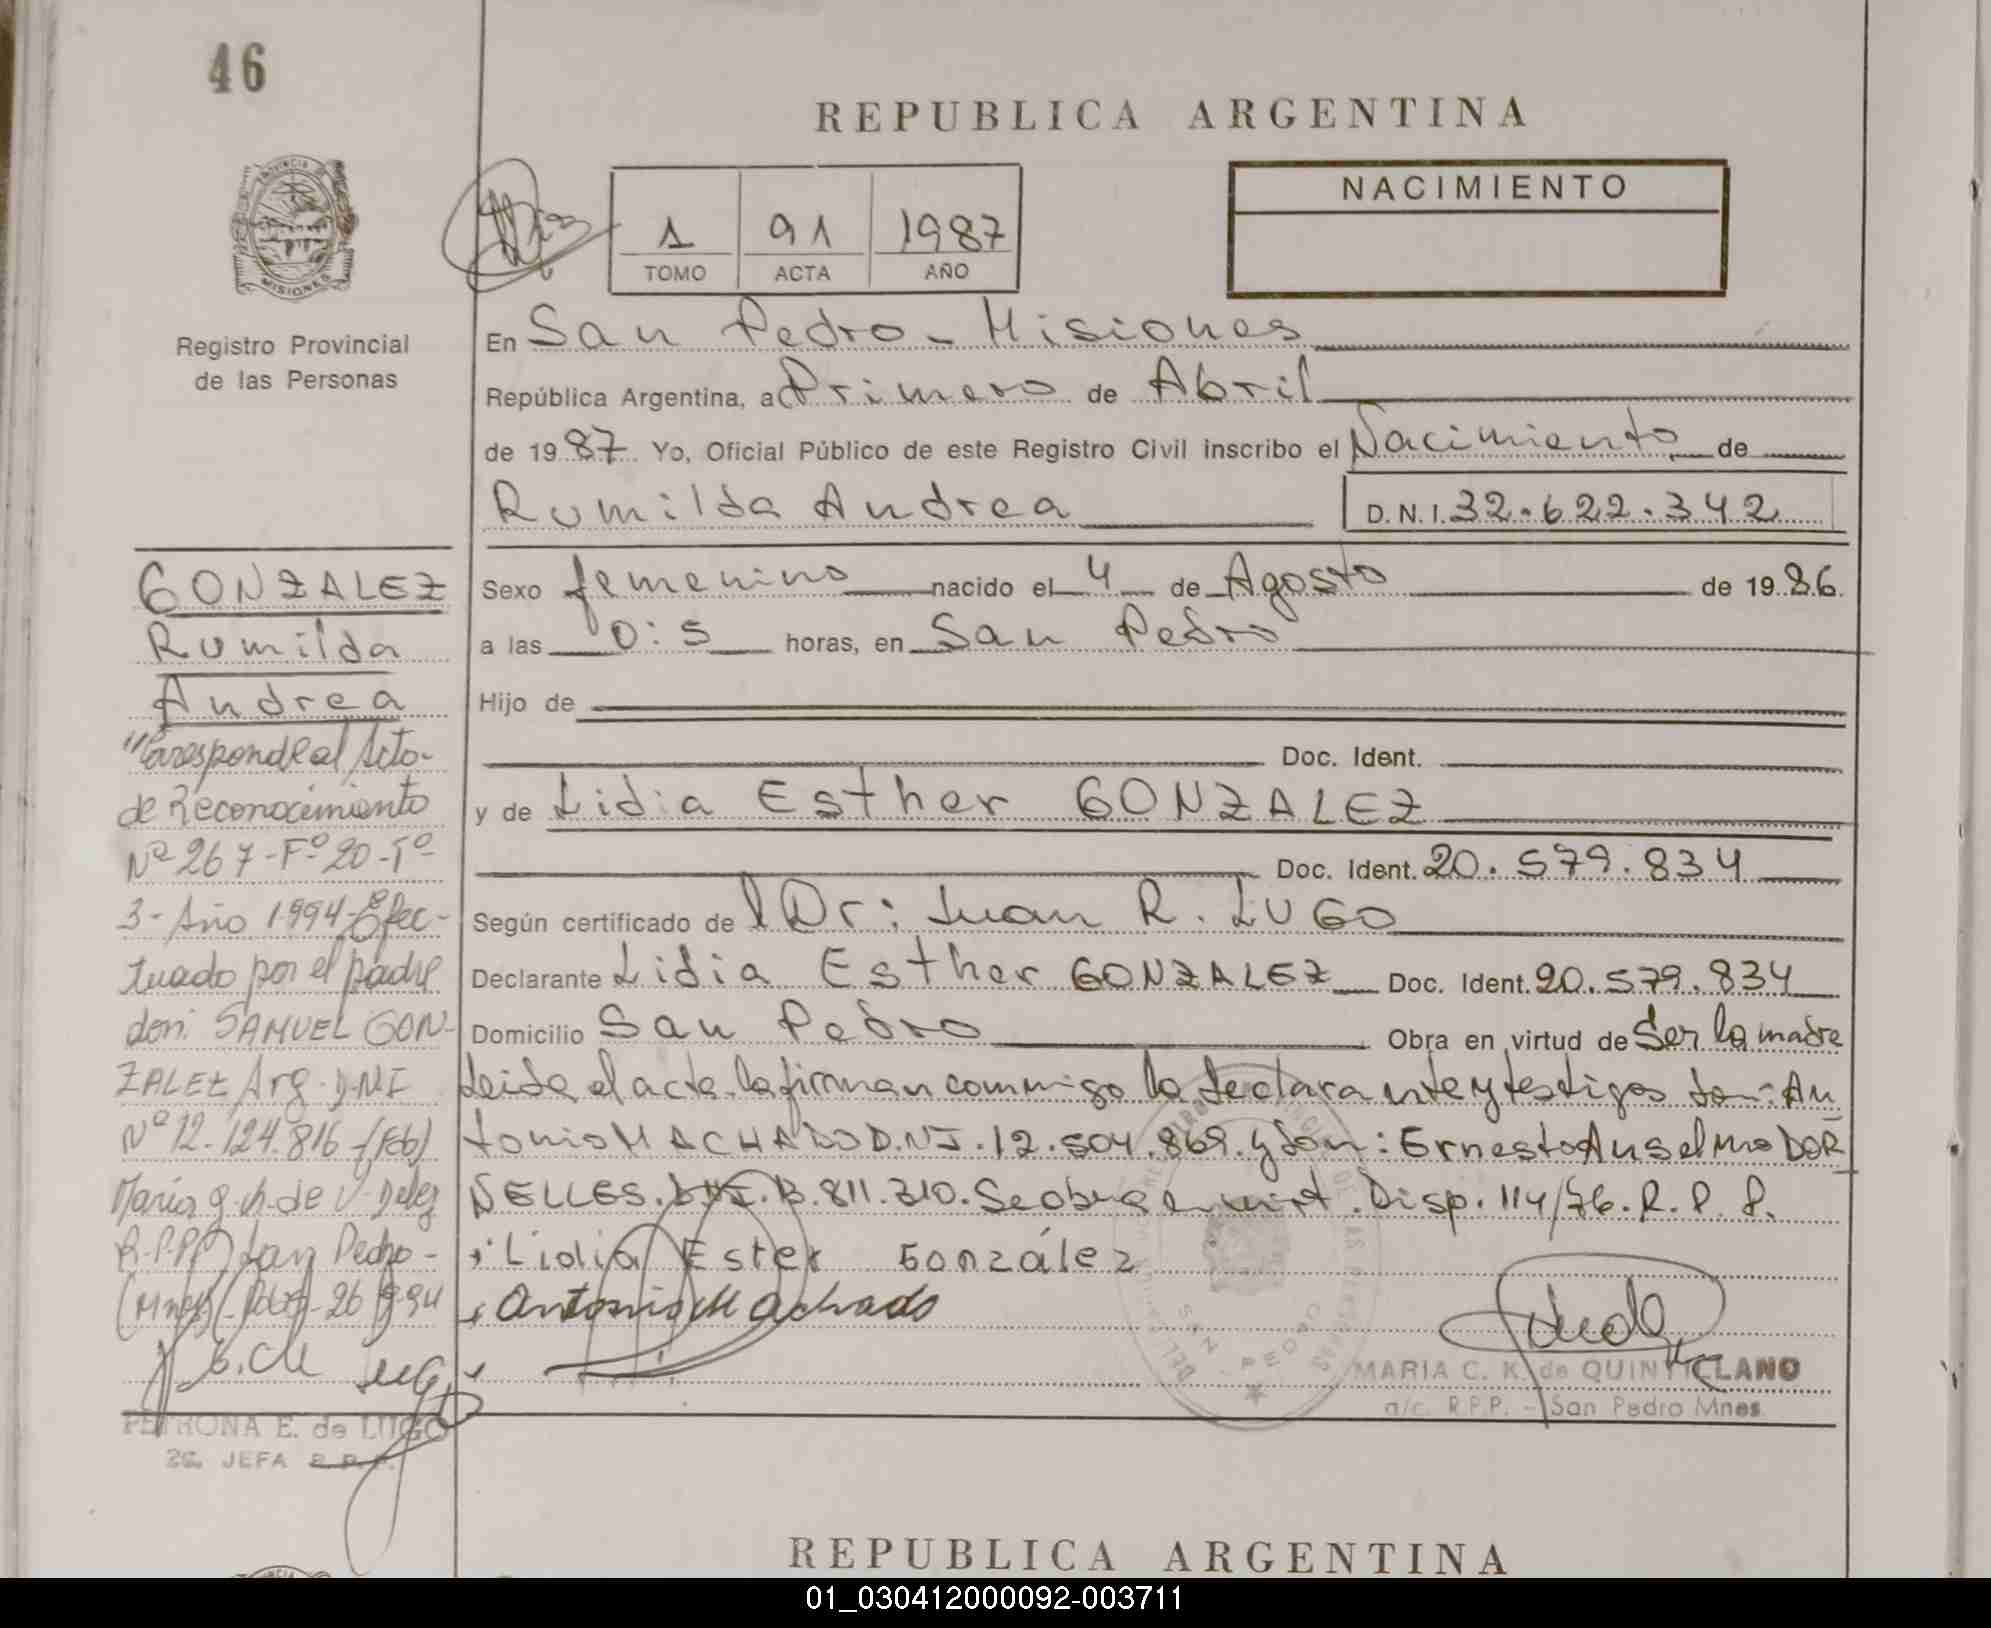 46
REPUBLICA ARGENTINA
PROVINCIA DE
MISIONES
1 91 1987
TOMO ACTA AÑO
NACIMIENTO
Registro Provincial
de las Personas
En San Pedro - Misiones
República Argentina, a Primero de Abril
de 1987 Yo, Oficial Público de este Registro Civil inscribo el Nacimiento de
Rumilda Andrea D.N.I. 32.622.342
Sexo femenino nacido el 4 de Agosto de 1986.
a las 0:5 horas, en San Pedro
Hijo de
Doc. Ident.
y de Lidia Esther GONZALEZ
Doc. Ident. 20.579.834
Según certificado del Dr: Juan R. LUGO
Declarante Lidia Esther GONZALEZ Doc. Ident. 20.579.834
Domicilio San Pedro Obra en virtud de Ser la madre
Leida el acta la firman conmigo la declarante y testigos don: An
tonio MACHADO D.N.I. 12.504.869. y don: Ernesto Anselmo DOR
NELLES. D.N.I. 13.811.310. Se obra en virt. Disp. 114/76. R. P. P.
Lidia Ester González
Antonio Machado
MARIA C. K. de QUINT CLANO
a/c. R.P.P. - San Pedro Mnes
GONZALEZ
Rumilda
Andrea
"Corresponde al Acto-
de Reconocimiento
Nº 267-Fº 20-Tº
3-Año 1994-Efec-
tuado por el padre
don: SAMUEL GON-
ZALEZ Arg. D.N.I
Nº 12.124.816-(Fdo)
María de V.
R.P.P) San Pedro-
(Mnes) 26 94
PETRONA E. de LUGO
2ª JEFA R.P.P.
REPUBLICA ARGENTINA
01_030412000092-003711